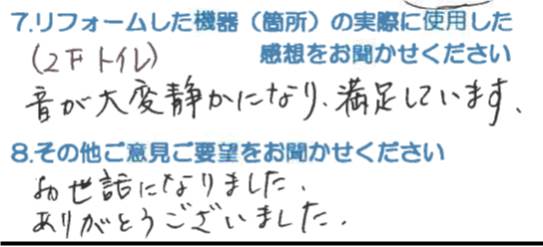 7.リフォームした機器（箇所）の実際に使用した
感想をお聞かせください
(2F トイレ)
音が大変静かになり、満足しています、
8.その他ご意見ご要望をお聞かせください
お世話になりました、
ありがとうございました、